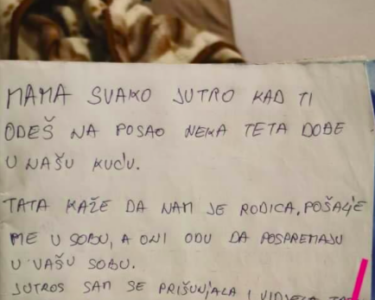 MAMA SVAKO JUTRO KAD TI
ODEŠ NA POSAO NEKA TETA DOĐE
U NAŠU KUĆU.
TATA KAŽE DA NAM JE RODICA, POŠALJE
ME U SOBU, A ONI ODU DA POSPREMAJU
U VAŠU SOBU.
JUTROS SAM SE PRIŠUNJALA I VIDJELA